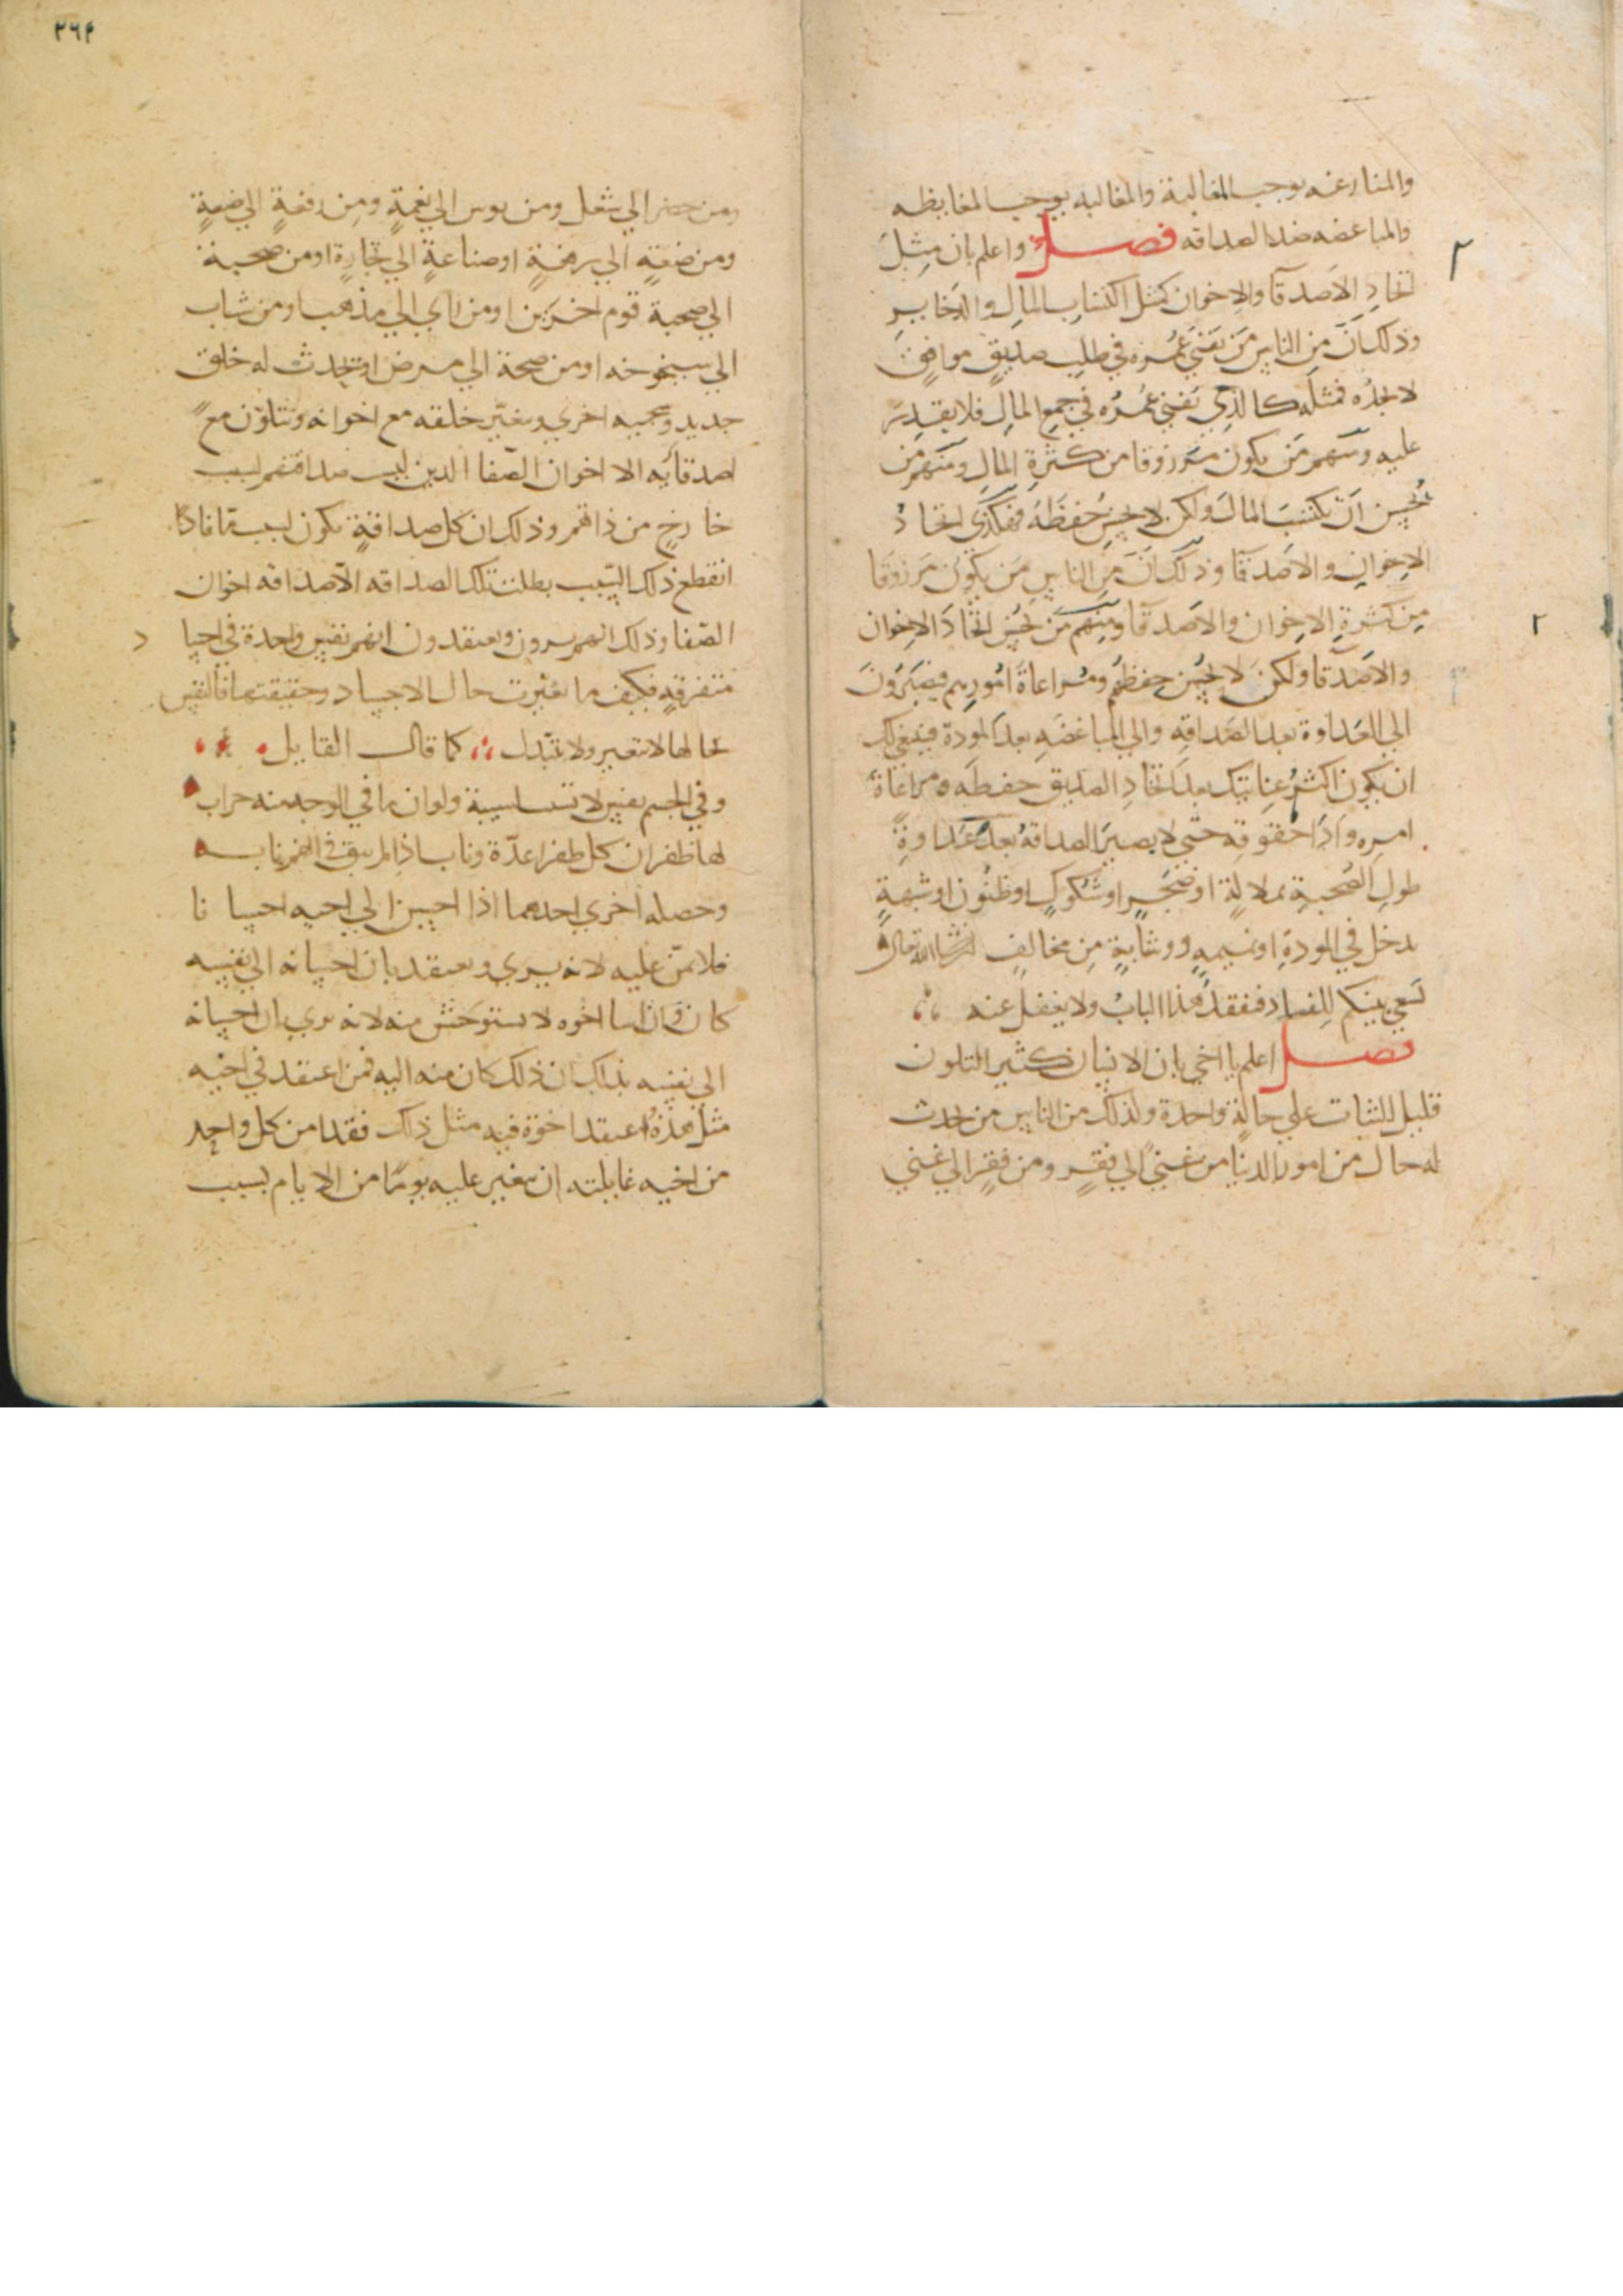 والمنازعه يوجب المغالبة والمغالبه يوجب المغايظه
والمباغضه ضد الصداقه فصل واعلم بان مِثلَ
اتخاذِ الاَصدقآ والاِخوان كمثل اكتسابِ المالِ والذخايرِ
وذلك اَنَّ مِن الناسِ مَن يَفني عُمُره في طلبِ صديقٍ موافقٍ
لا يجدُه فمثله كالذِي يَفني عُمُرُه في جمعِ المالِ فلا يقدِرُ
عليه ومنهم مَن يكون مَرزوقا من كثرةِ المالِ ومنهم مَن
يُحسِن اَن يكتسبَ المالَ ولكن لا يحسِن حُفظَهُ فهكذي اتخاذُ
الاِخوانِ والاَصدقآ وذلك اَنَّ مِن الناسِ مَن يكون مَرزوقا
مِن كثرةِ الاِخوان والاَصدقآ ومنهم مَن يُحسِن اتخاذَ الاِخوان
والاَصدقآ ولكن لا يُحسِن حِفظهُم ومُراعاةَ امُورِهم فيَصِيرونَ
الي العَداوة بعد الصَداقةِ والي المباغضَهِ بعد المودة فينبغي لك
ان يكون اكثرُ عِنايتِك بعد اتخاذِ الصديق حفظَه ومراعاة
امرِه واَدَآ حُقوقِه حتي لا يصيرَ الصداقةُ بعدُ عَداوةً
طولِ الصُحبةِ بملالةٍ اوضَجَرٍ اوشكوكٍ اوظنُونٍ اوشبهةٍ
يدخل في المودةِ اونميمهٍ ووشايةٍ مِن مخالِفٍ ان شاالله تعالي
يَسعي بينكم لِلفسادِ فتفقد هذا البابُ ولا يغفل عنه
فصل اعلم يا اخي بان الانسان كثير التلون
قليل الثبات علي حالةٍ واحدة ولذلك من الناس من حدث
له حال من امور الدنيا من غنيً الي فقرٍ ومن فقرٍ الي غني
٣٦٤
ومن حضر الي شغل ومن بوس الي نِعمةٍ ومِن رفعةٍ الي ضعةٍ
ومن ضعةٍ الي رفعةٍ اوصناعةٍ الي تجارةٍ اومن صحبة
الي صحبة قوم اخرين اومن راي الي مذهب اومن شاب
الي شيخوخه اومن صحة الي مرض اويحدث له خلق
جديد وسجيه اخري ويتغيّر خلقه مع اخوانه ويتلوّن مع
اصدقائِه الا اخوان الصّفا الذين ليس صداقتهم لسبب
خارجٍ من ذاتهم وذلك ان كل صداقةٍ يكون لسببٍ مّا فاذا
انقطع ذلك السّبب بطلت تلك الصداقه الّا صداقه اخوان
الصّفا وذلك انهم يرون ويعتقدون انهم نفس واحدة في اجسا
متفرقهٍ فكيف ما تغيّرت حال الاجساد وحقيقتها فالنفس
بحالها لا تتغير ولا تتبّدل كما قال القايل
وفي الجسم نفس لا تشيب بشيبة ولو ان ما في الوجه منه حراب
لها ظفر ان كل ظفر اعدّة وناب اذا لم يبق في الفم ناب
وخصله اخري احدهما اذا احسن الي اخيه احسانا
فلا يمّن عليه لانه يري ويعتقد بان احسانه الي نفسه
كان وان اسا اخوه لا يستوحش منه لانه يري بان احسانه
الي نفسه بذاك ان ذلك كان منه اليه فمن اعتقد في اخيه
مثل هذه اعتقد اخوة فيه مثل ذلك فقد امن كل واحد
من اخيه غايلته ان يتغير عليه يومًا من الايام لسبب